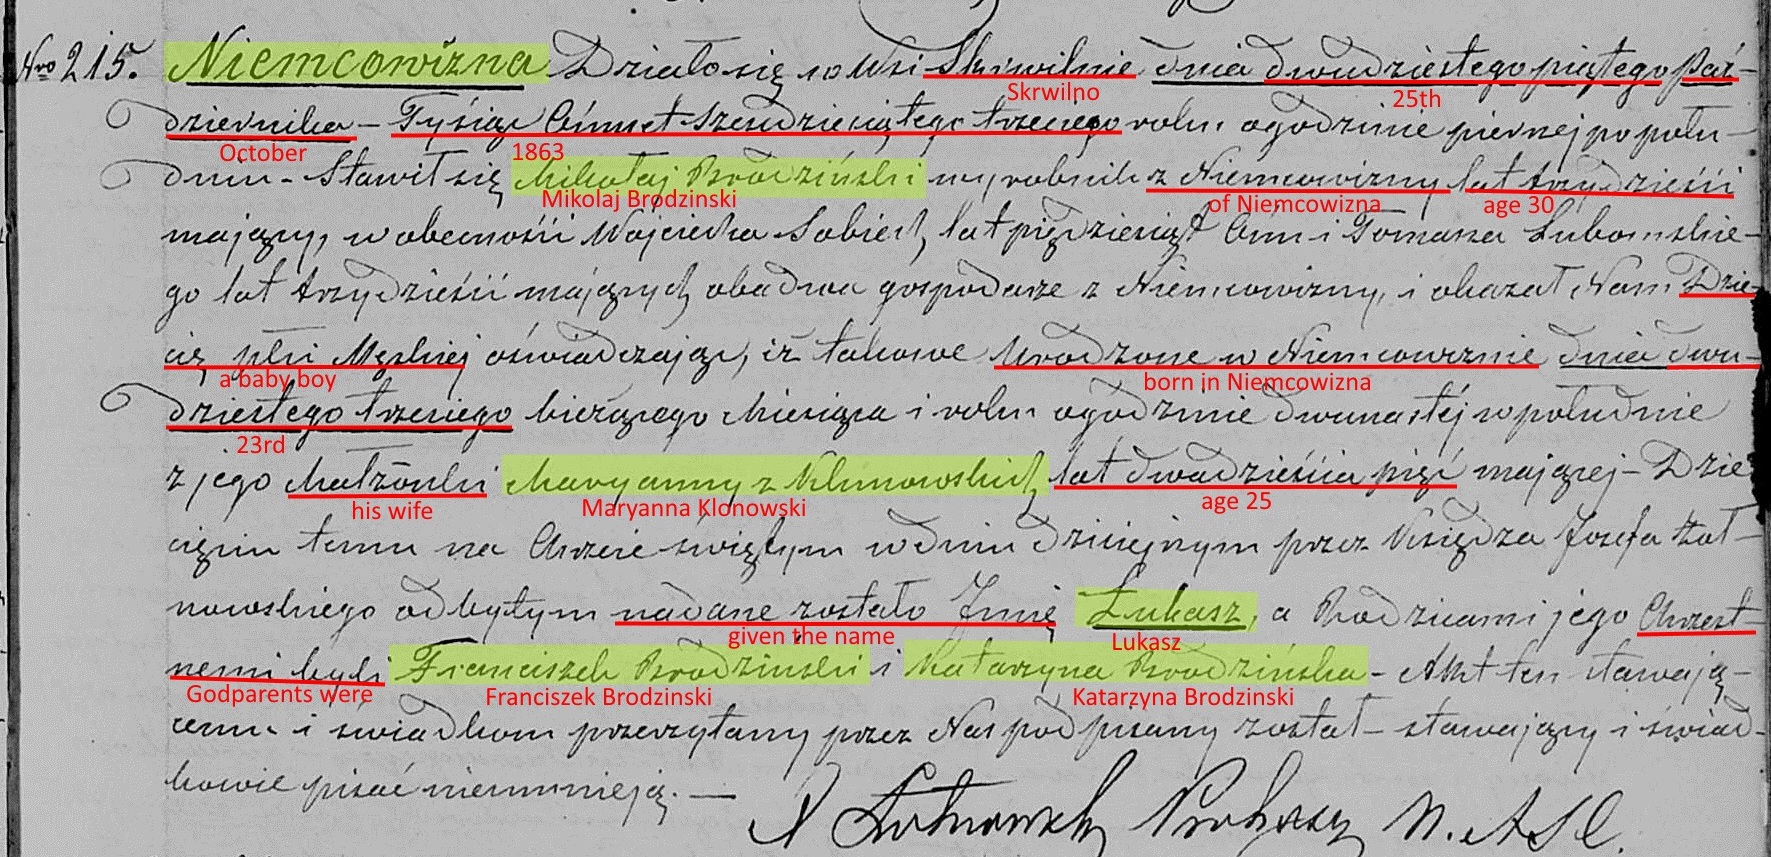 Nro 215. Niemcowizna Działo się w Wsi Skrwilnie dnia dwudziestego piątego Paź-
Skrwilno 25th
dziernika - Tysiąc Ośmset sześdziesiątego trzeciego roku o godzinie pierwszej po połu-
October 1863
dniu - Stawił się Mikołaj Brodziński wyrobnik z Niemcowizny lat trzydzieści
Mikolaj Brodzinski of Niemcowizna age 30
mający, w obecności Wojciecha Sobiech, lat pięćdziesiąt Ośm i Tomasza Lubomskie-
go lat trzydzieści mających obadwa gospodarze z Niemcowizny, i okazał Nam Dzie-
cię płci Męskiej oświadczając, iż takowe Urodzone w Niemcowiznie dnia dwu-
a baby boy born in Niemcowizna
dziestego trzeciego bieżącego Miesiąca i roku o godzinie dwunastej w południe
23rd
z jego Małżonki Maryanny z Klonowskich lat dwadzieścia pięć mającej - Dzie
his wife Maryanna Klonowski age 25
cięciu temu na Chrzcie świętym w dniu dzisiejszym przez Księdza Józefa
nowskiego odbytym nadane zostało Imię Łukasz, a Rodzicami jego Chrzest-
given the name Lukasz
nemi byli Franciszek Brodzinski i Katarzyna Brodzińska - Akt ten stawają-
Godparents were Franciszek Brodzinski Katarzyna Brodzinski
cemu i świadkom przeczytany przez Nas podpisany został - stawający i świad-
kowie pisać nieumieją. —
X Proboszcz U. A. S. C.